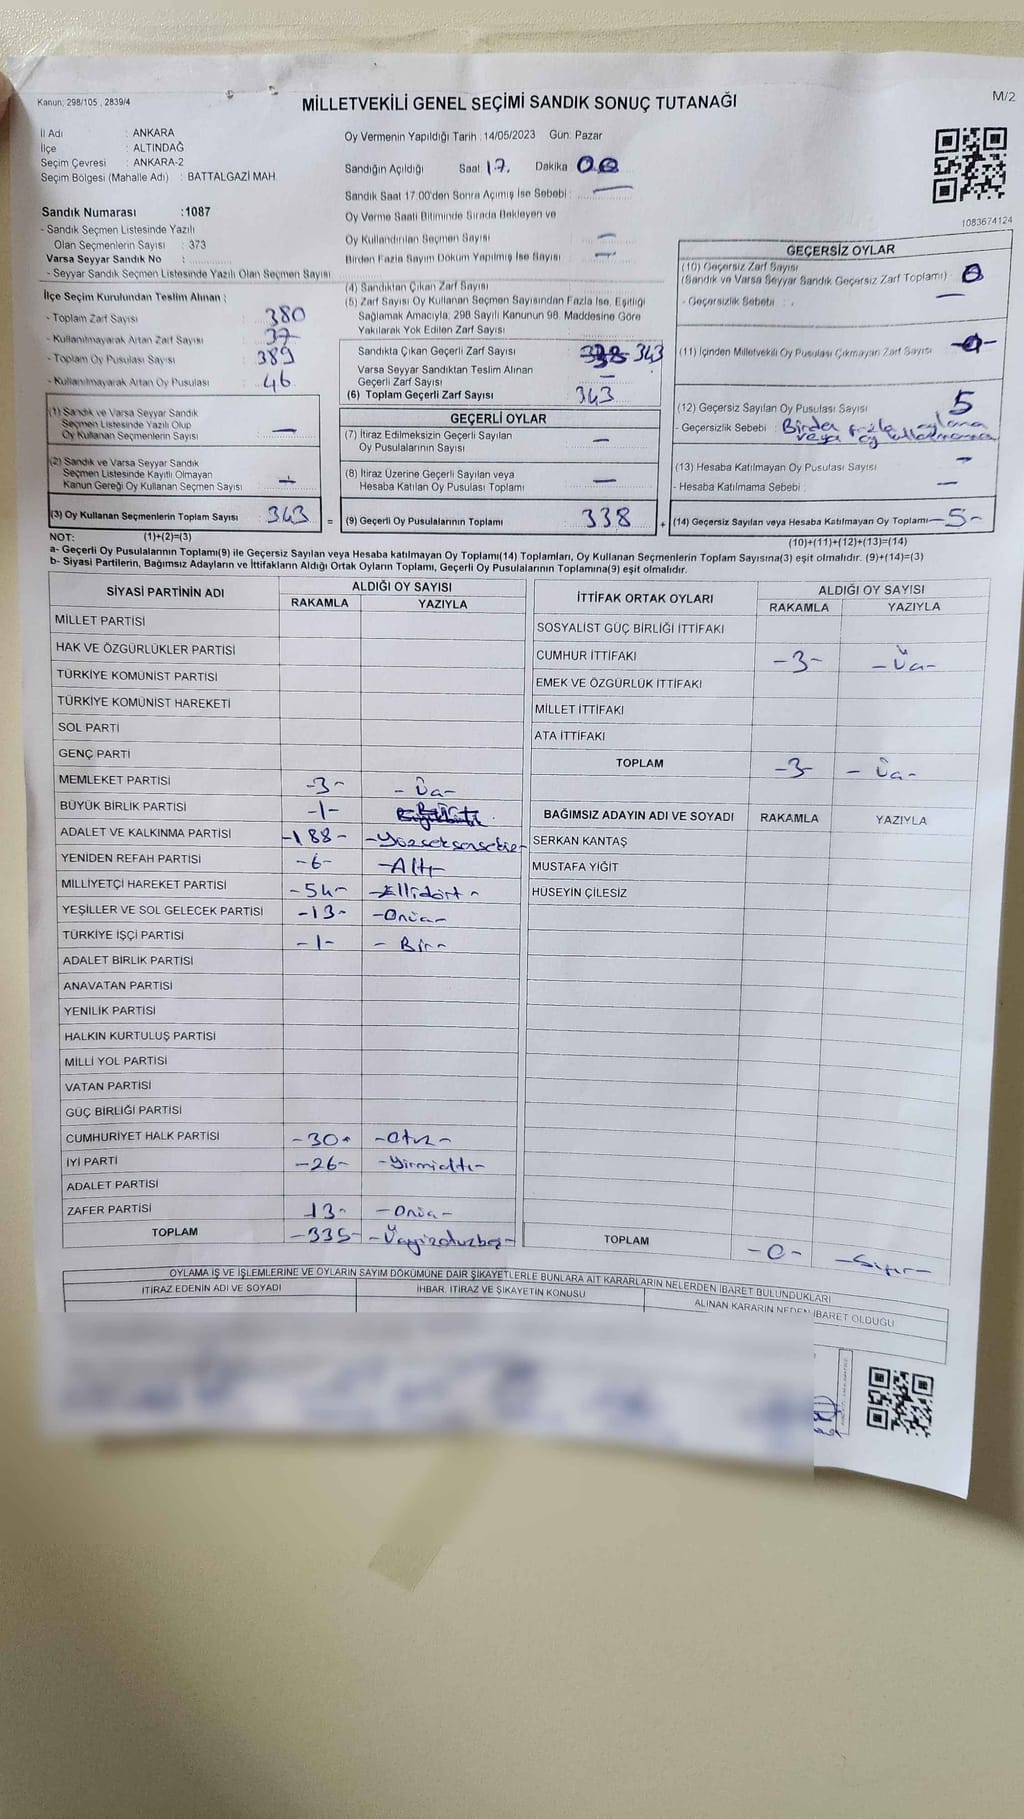 Kanun: 298/105 , 2839/4
MİLLETVEKİLİ GENEL SEÇİMİ SANDIK SONUÇ TUTANAĞI
M/2
İl Adı : ANKARA
İlçe : ALTINDAĞ
Seçim Çevresi : ANKARA-2
Seçim Bölgesi (Mahalle Adı) : BATTALGAZİ MAH.
Sandık Numarası :1087
- Sandık Seçmen Listesinde Yazılı
Olan Seçmenlerin Sayısı : 373
Varsa Seyyar Sandık No :
- Seyyar Sandık Seçmen Listesinde Yazılı Olan Seçmen Sayısı
Oy Vermenin Yapıldığı Tarih : 14/05/2023 Gün: Pazar
Sandığın Açıldığı Saat 17. Dakika 00
Sandık Saat 17:00'den Sonra Açımış İse Sebebi : —
Oy Verme Saati Bitiminde Sırada Bekleyen ve
Oy Kullandırılan Seçmen Sayısı : —
Birden Fazla Sayım Döküm Yapılmış İse Sayısı : —
1083674124
İlçe Seçim Kurulundan Teslim Alınan ;
- Toplam Zarf Sayısı 380
- Kullanılmayarak Artan Zarf Sayısı 37
- Toplam Oy Pusulası Sayısı 389
- Kullanılmayarak Artan Oy Pusulası 46
(1) Sandık ve Varsa Seyyar Sandık
Seçmen Listesinde Yazılı Olup
Oy Kullanan Seçmenlerin Sayısı —
(2) Sandık ve Varsa Seyyar Sandık
Seçmen Listesinde Kayıtlı Olmayan
Kanun Gereği Oy Kullanan Seçmen Sayısı —
(3) Oy Kullanan Seçmenlerin Toplam Sayısı 343
(4) Sandıktan Çıkan Zarf Sayısı :
(5) Zarf Sayısı Oy Kullanan Seçmen Sayısından Fazla İse, Eşitliği
Sağlamak Amacıyla, 298 Sayılı Kanunun 98. Maddesine Göre
Yakılarak Yok Edilen Zarf Sayısı :
Sandıkta Çıkan Geçerli Zarf Sayısı 338 343
Varsa Seyyar Sandıktan Teslim Alınan
Geçerli Zarf Sayısı —
(6) Toplam Geçerli Zarf Sayısı 343
GEÇERLİ OYLAR
(7) İtiraz Edilmeksizin Geçerli Sayılan
Oy Pusulalarının Sayısı —
(8) İtiraz Üzerine Geçerli Sayılan veya
Hesaba Katılan Oy Pusulası Toplamı —
= (9) Geçerli Oy Pusulalarının Toplamı 338
GEÇERSİZ OYLAR
(10) Geçersiz Zarf Sayısı
(Sandık ve Varsa Seyyar Sandık Geçersiz Zarf Toplamı) : 0
- Geçersizlik Sebebi : —
(11) İçinden Milletvekili Oy Pusulası Çıkmayan Zarf Sayısı -0-
(12) Geçersiz Sayılan Oy Pusulası Sayısı 5
- Geçersizlik Sebebi : Birden fazla oylama
veya oy kullanmama
(13) Hesaba Katılmayan Oy Pusulası Sayısı —
- Hesaba Katılmama Sebebi : —
+ (14) Geçersiz Sayılan veya Hesaba Katılmayan Oy Toplamı -5-
NOT: (1)+(2)=(3)
(10)+(11)+(12)+(13)=(14)
a- Geçerli Oy Pusulalarının Toplamı(9) ile Geçersiz Sayılan veya Hesaba katılmayan Oy Toplamı(14) Toplamları, Oy Kullanan Seçmenlerin Toplam Sayısına(3) eşit olmalıdır. (9)+(14)=(3)
b- Siyasi Partilerin, Bağımsız Adayların ve İttifakların Aldığı Ortak Oyların Toplamı, Geçerli Oy Pusulalarının Toplamına(9) eşit olmalıdır.
SİYASİ PARTİNİN ADI ALDIĞI OY SAYISI
RAKAMLA YAZIYLA
MİLLET PARTİSİ
HAK VE ÖZGÜRLÜKLER PARTİSİ
TÜRKİYE KOMÜNİST PARTİSİ
TÜRKİYE KOMÜNİST HAREKETİ
SOL PARTİ
GENÇ PARTİ
MEMLEKET PARTİSİ -3- -Üç-
BÜYÜK BİRLİK PARTİSİ -1-
ADALET VE KALKINMA PARTİSİ -188- -Yüzseksensekiz-
YENİDEN REFAH PARTİSİ -6- -Altı-
MİLLİYETÇİ HAREKET PARTİSİ -54- -Ellidört-
YEŞİLLER VE SOL GELECEK PARTİSİ -13- -Onüç-
TÜRKİYE İŞÇİ PARTİSİ -1- -Bir-
ADALET BİRLİK PARTİSİ
ANAVATAN PARTİSİ
YENİLİK PARTİSİ
HALKIN KURTULUŞ PARTİSİ
MİLLİ YOL PARTİSİ
VATAN PARTİSİ
GÜÇ BİRLİĞİ PARTİSİ
CUMHURİYET HALK PARTİSİ -30- -Otuz-
İYİ PARTİ -26- -Yirmialtı-
ADALET PARTİSİ
ZAFER PARTİSİ 13- -Onüç-
TOPLAM -335- -Üçyüzotuzbeş-
İTTİFAK ORTAK OYLARI ALDIĞI OY SAYISI
RAKAMLA YAZIYLA
SOSYALİST GÜÇ BİRLİĞİ İTTİFAKI
CUMHUR İTTİFAKI -3- -Üç-
EMEK VE ÖZGÜRLÜK İTTİFAKI
MİLLET İTTİFAKI
ATA İTTİFAKI
TOPLAM -3- -Üç-
BAĞIMSIZ ADAYIN ADI VE SOYADI RAKAMLA YAZIYLA
SERKAN KANTAŞ
MUSTAFA YİĞİT
HÜSEYİN ÇİLESİZ
TOPLAM -0- -Sıfır-
OYLAMA İŞ VE İŞLEMLERİNE VE OYLARIN SAYIM DÖKÜMÜNE DAİR ŞİKAYETLERLE BUNLARA AİT KARARLARIN NELERDEN İBARET BULUNDUKLARI
İTİRAZ EDENİN ADI VE SOYADI İHBAR, İTİRAZ VE ŞİKAYETİN KONUSU ALINAN KARARIN NEDEN İBARET OLDUĞU